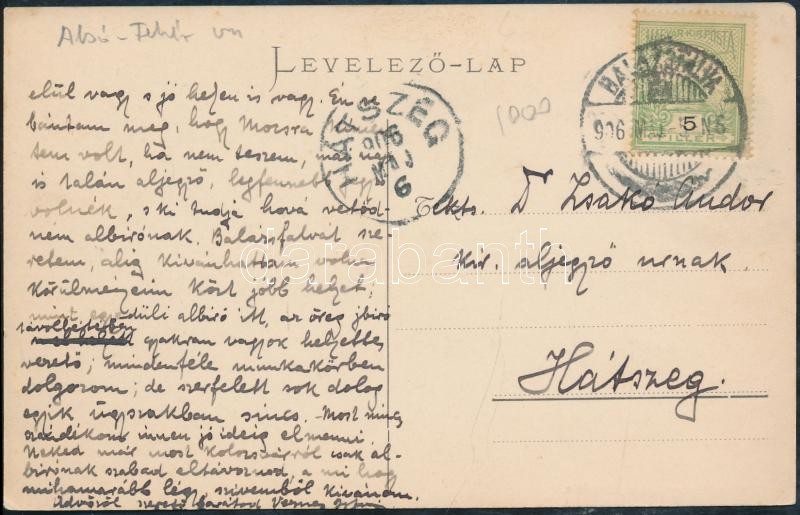 Alsó-Fehér vm
LEVELEZŐ-LAP
1000
MAGYAR KIR. POSTA
5
FILLÉR
BALÁZSFALVA
906 MÁJ 5 N6
HÁTSZEG
906
MÁJ
6
elül vagy s jó helyen is vagy. Én se
bántam meg, hogy Mocsra
tem volt, ha nem teszem, má
is talán aljegző, legfennebb
volnék, s ki tudja hová vetőd-
nem albirónak. Balázsfalvát sze-
retem, alig kivánhattam volna
körülményeim közt jobb helyet;
mint egyedüli albiró itt, az öreg jbiró
távollétében gyakran vagyok helyettes
vezető; mindenféle munkakörben
dolgozom; de szerfelett sok dolog
egyik ügyszakban sincs. Most nincs
szándékom innen jó ideig elmenni.
Neked már most Kolozsvárról csak al-
birónak szabad eltávoznod, a mi hogy
mihamarább légy szivemből kivánom.
Üdvözöl szerető barátod
Tekts. Dr Zsakó Andor
kir. aljegző urnak.
Hátszeg.
darabanth